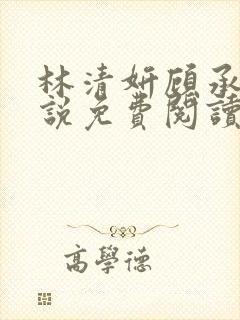 林清妍顾承
說免費閱讀
高學德